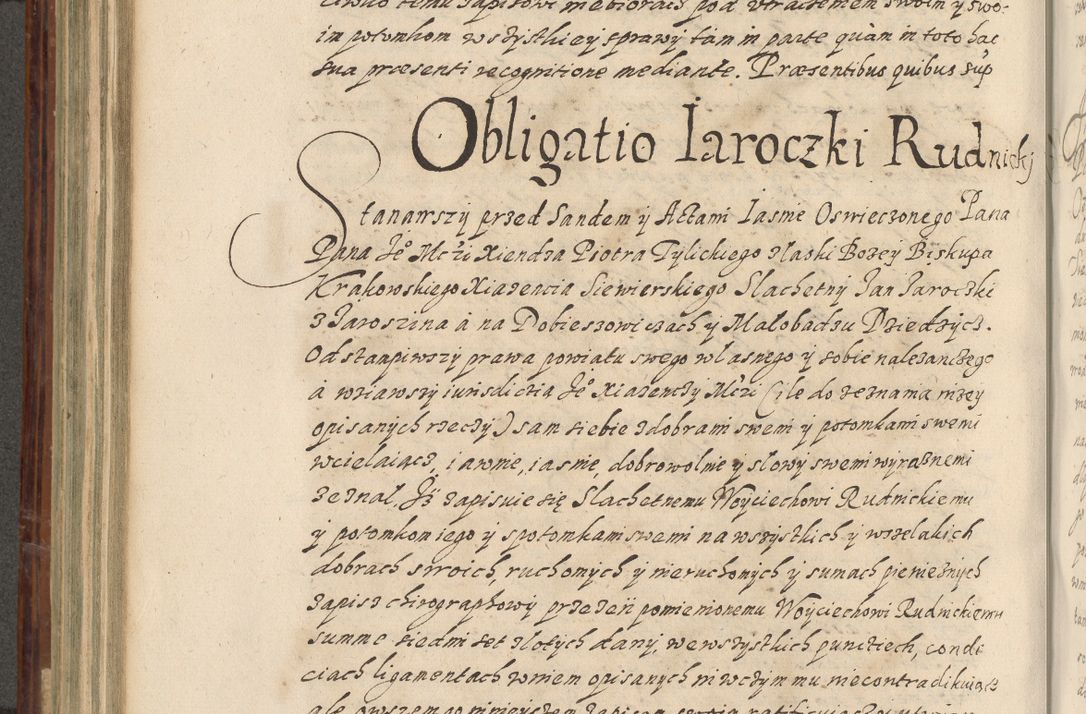 temu zapisowi nie biorącz pod utraceniem swoim y swo-
im potomkom wszystkiey sprawy tam in parte quàm in toto hac
sua præsenti recognitione mediante. Præsentibus quibus sup
Obligatio Iaroczki Rudnickj
Stanawszy przed Sandem y Actami Iasnie Oswieczonego Pana
Pana Je° Mczi Xiendza Piotra Tylickiego zlaski Bozey Biskupa
Krakowskiego Xiazencia Siewierskiego Slachetny Jan Jaroczki
z Jaroszina à na Dobieszowiczach y Malobadzu Dziedzycz.
Odstanpiwszy prawa powiatu swego wlasnego y sobie nalezanczego
à wziawszy iurisdiczia Je° Xiazenczy Mczi (ile do zeznania nizey
opisanych rzeczy) sam siebie z dobrami swemi y potomkami swemi
wcielaiącz, iawnie, iasnie, dobrowolnie y slowy swemi wyraznemi
zeznal, Jż zapisuie się Slachetnemu Woyciechowi Rudnickiemu
y potomkom iego y spotomkami swemi na wszystkich y wszelakich
dobrach swoich, ruchomych y nieruchomych y sumach pienieznych
zapis z chirographowy przezeń pomienionemu Woyciechowi Rudnickiemu
summe siedmi set zlotych dany, we wszystkich punctiech, condi
ciach ligamentach w niem opisanych ni w czym mu niecontradikuiącz
ale owszem go ninieyszem zapisem